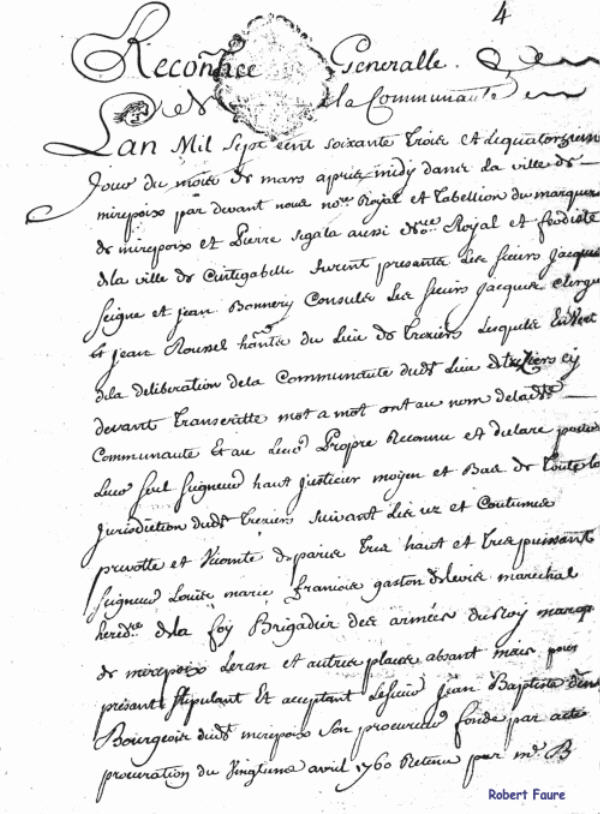 4
Reconn.ce Generalle
de la Communauté
Lan Mil Sept cent soixante trois et le quatorzieme
Jour du mois de mars apres midy dans la ville de
mirepoix par devant nous no.re Royal et tabellion du marquisat
de mirepoix et Pierre Sigala aussi No.re Royal et feodiste
de la ville de Cintegabelle furent presants les sieurs Jacques
seigne et jean Bonnery Consuls les sieurs Jacques Clergue
Et jean Roussel hants du Lieu de treziers Lesquels En Vert
de la deliberation de la Communauté dudt Lieu de treziers cy
devant transcritte mot a mot ont au nom de lad.te
Communauté Et au Leur Propre Reconnu et declare
Leur seul seigneur haut justicier moyen et Bas de toute la
Jurisdiction dudt treziers suivant Les uz et Coutumes
prevotte et Vicomté de paris tres haut et tres puissant
seigneur Louis marie francois gaston de levis marechal
hered.re de la foy Brigadier des armées du Roy marqs
de mirepoix Leran et autres places absant mais pour
présant stipulant Et acceptant Le sieur Jean Baptiste
Bourgeois dudt mirepoix son procureur fondé par acte
procuration du Vingtieme avril 1760 Retenu par m.e B
Robert Faure